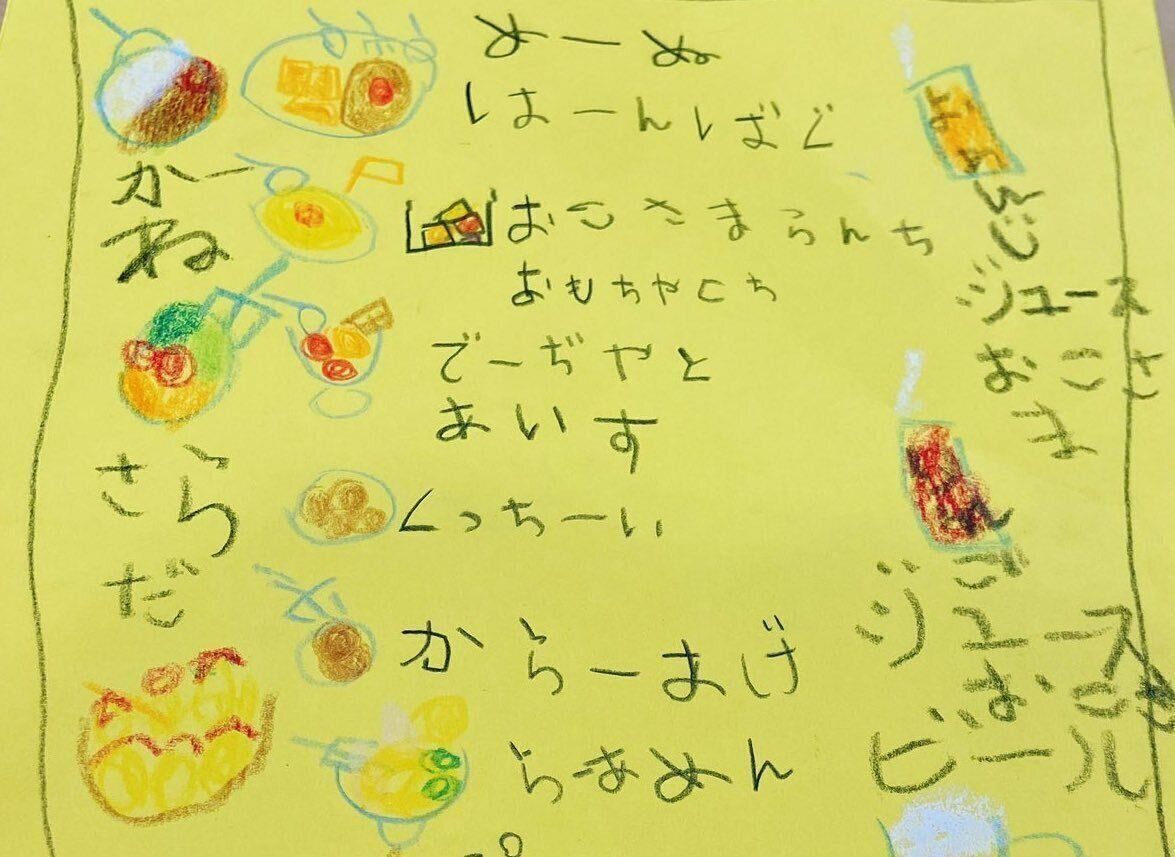 めーぬ
はーんばぐ
かー
れ
おこさまらんち
おもちや
でーぢやと
あいす
さら
だ
くっちーい
からーあげ
らーあめん
ジュース
おこさ
ま
んご
ジュース
おこさ
ビール